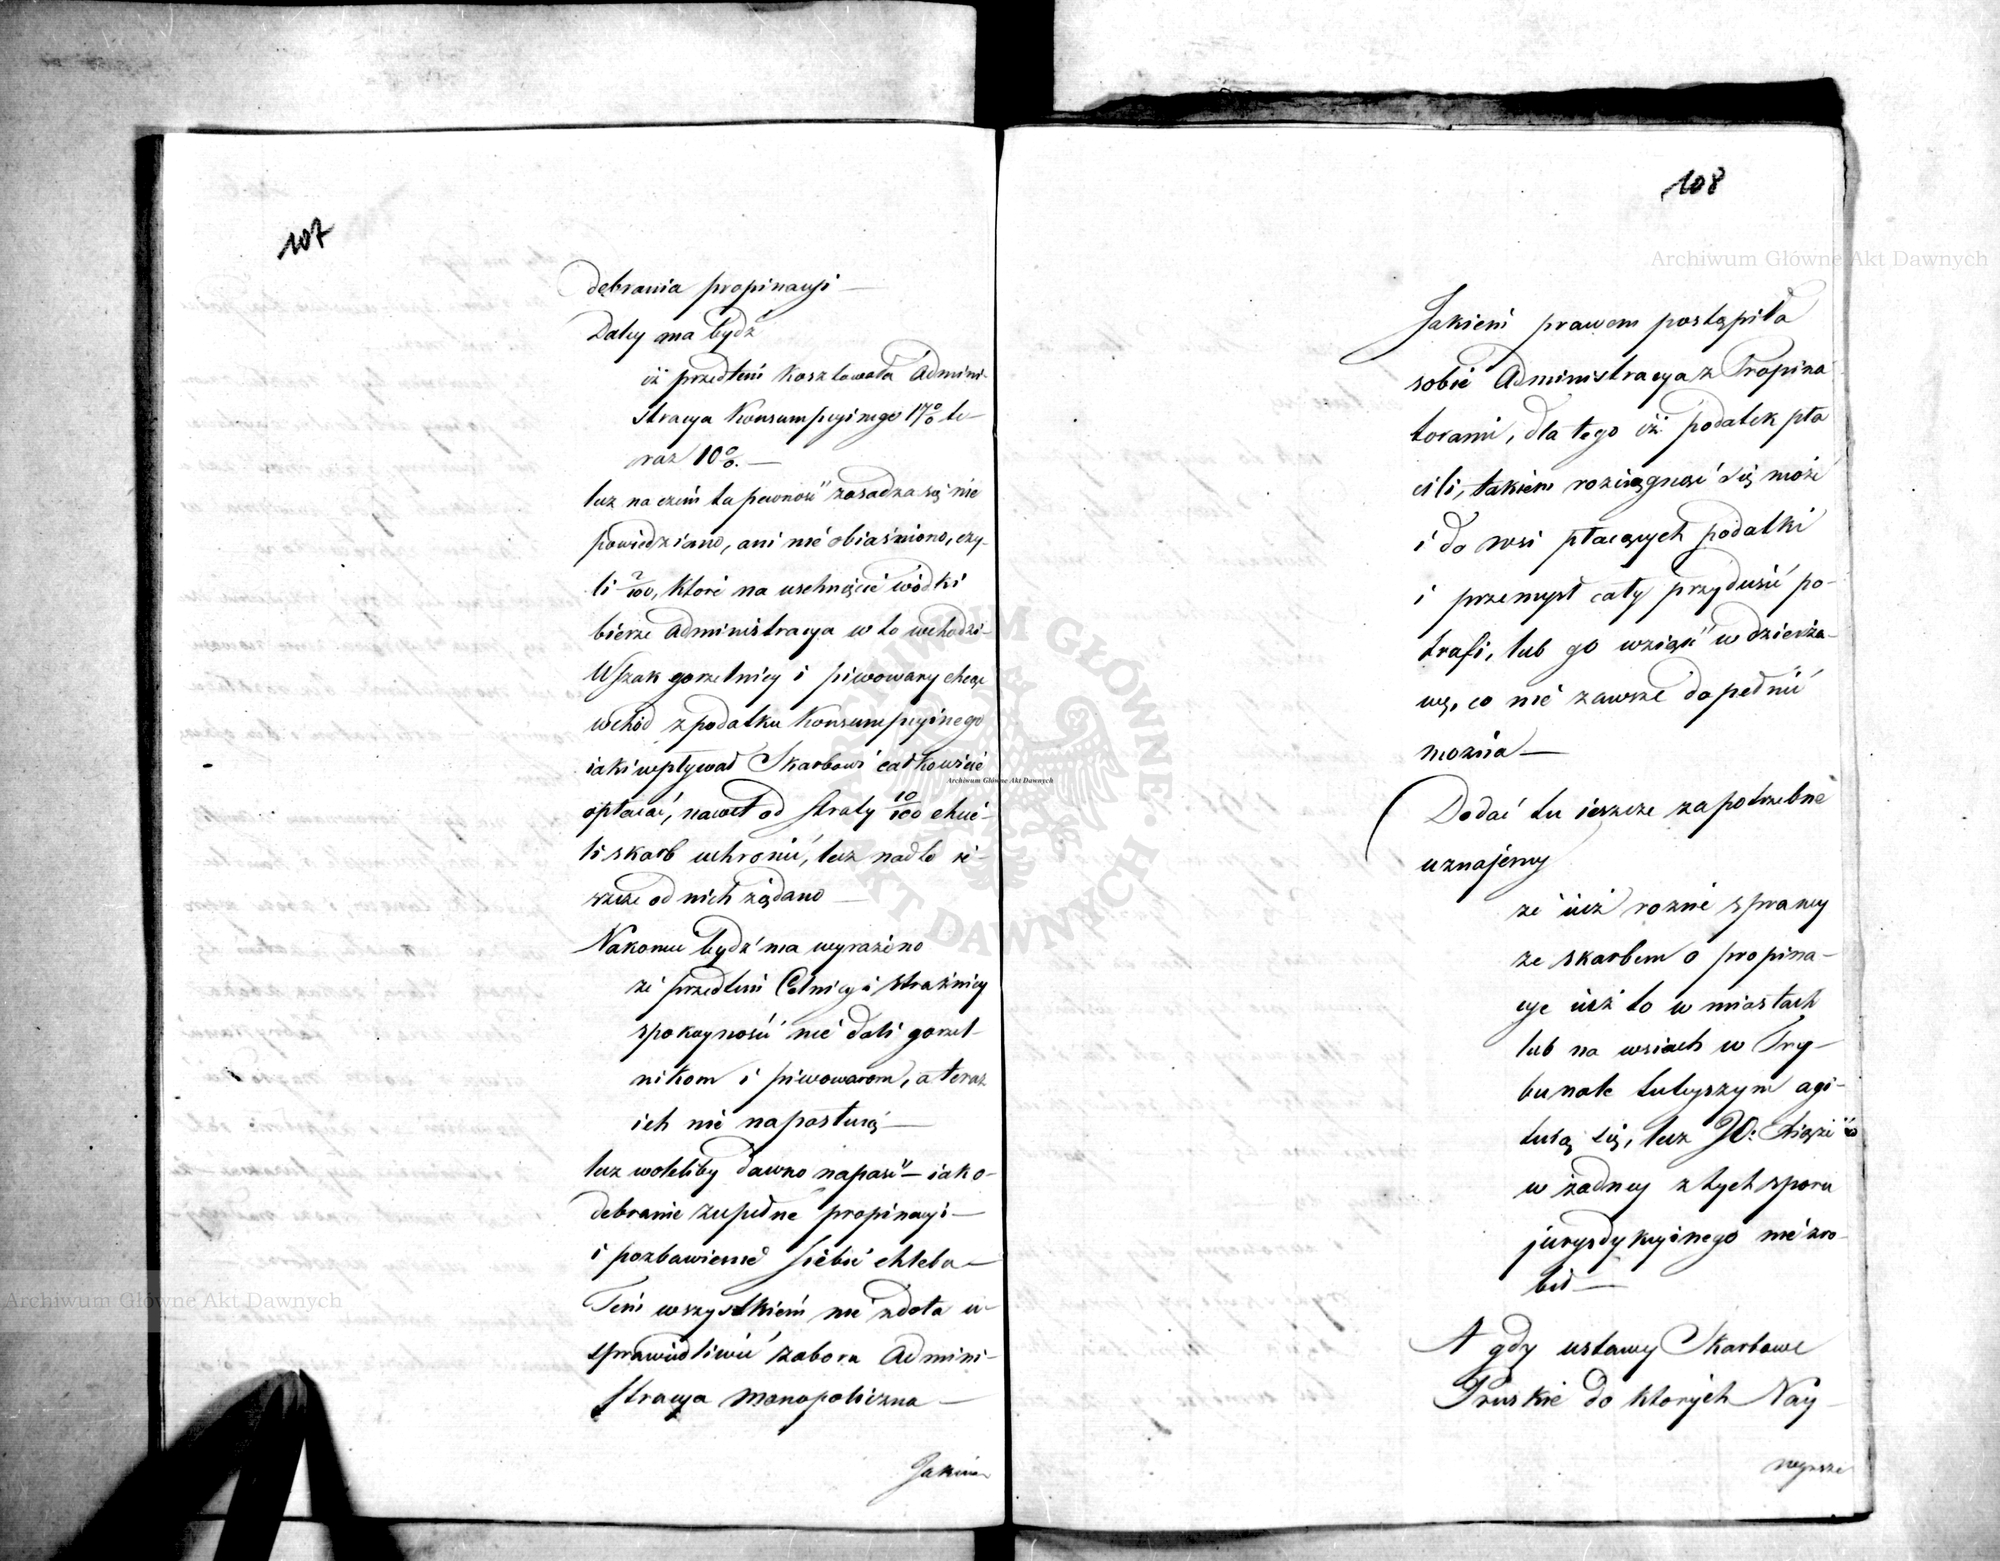 107
debrania propinacyi —
Daley ma bydź
iż przedtem kosztowała Admini-
stracya Konsumpcyinego 17 o/o te-
raz 10 o/o. —
lecz na czem ta pewność zasadza się nie
powiedziano, ani nie obiaśniono, czy-
li /100, które na uschnięcie wódki
bierze Administracya w to wchodzi —
Wszak gorzelnicy i piwowary chcąc
wchód z podatku Konsumpcyinego
iaki wpływał Skarbowi całkowicie
opłacać, nawet od straty 10/100 chcie-
li skarb uchronić, lecz nadto ie-
szcze od nich żądano —
Nakoniec bydź ma wyrażono
że przedtem Celnicy i strażnicy
spokoyności nie dali gorzel-
nikom i piwowarom, a teraz
ich nie napastuią —
lecz woleliby dawno napaść — iak o-
debranie zupełne propinacyi —
i pozbawienie siebie chleba —
Tem wszystkiem nie zdoła u-
sprawiedliwić zaboru Admini-
stracya monopoliczna —
Jakiem
108
Jakiem prawem postąpiła
sobie Administracya z Propina
torami, dla tego iż podatek pła
cili, takiem rozciągnąć się może
i do wsi płacących podatki
i przemysł cały przydusić po-
trafi, lub go wziąść w dzierża-
wę, co nie zawsze dopełnić
można —
Dodać tu ieszcze za potrzebne
uznajemy
że iuż rozne sprawy
ze skarbem o propina-
cye iuż to w miastach
lub na wsiach w Try-
bunale tuteyszym agi-
tuią się, lecz JO: Xiąże
w żadney z tych sporu
jurysdykcyinego nie zro-
bił —
A gdy ustawy Skarbowe
Pruskie do których Nay-
wyższe
Archiwum Główne Akt Dawnych
Archiwum Główne Akt Dawnych
Archiwum Główne Akt Dawnych
ARCHIWUM GŁÓWNE AKT DAWNYCH